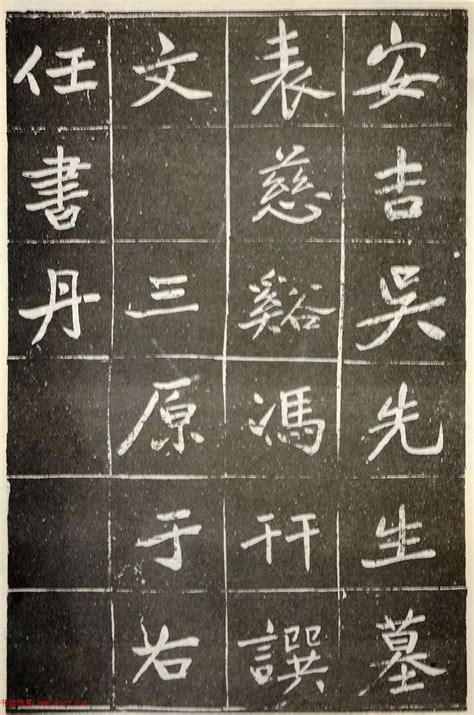 安吉吳先生墓
表慈谿馮幵譔
文 三原于右
任書丹